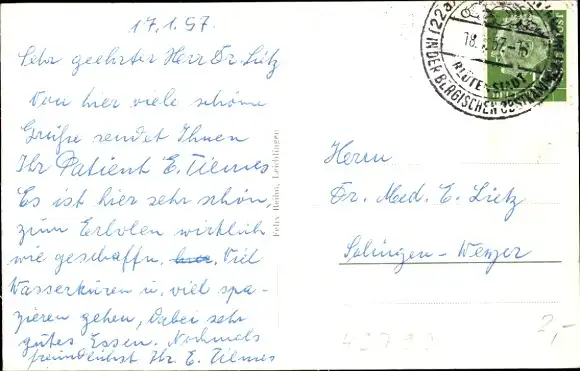 17.1.57
Sehr geehrter Herr Dr. Lietz
Von hier viele schöne
Grüße sendet Ihnen
Ihr Patient E. Tilmes
Es ist hier sehr schön,
zum Erholen wirklich
wie geschaffn. Viel
Wasserkuren u. viel spa-
zieren gehen, Dabei sehr
gutes Essen. Nochmals
freundlichst Ihr. E. Tilmes
Felix Leichlingen
(22a)
18. 57-15
BLÜTENSTADT
IN DER BERGISCHEN OBSTKAMMER
Herrn
Dr. Med. E. Lietz
Solingen-Weyer
2,-